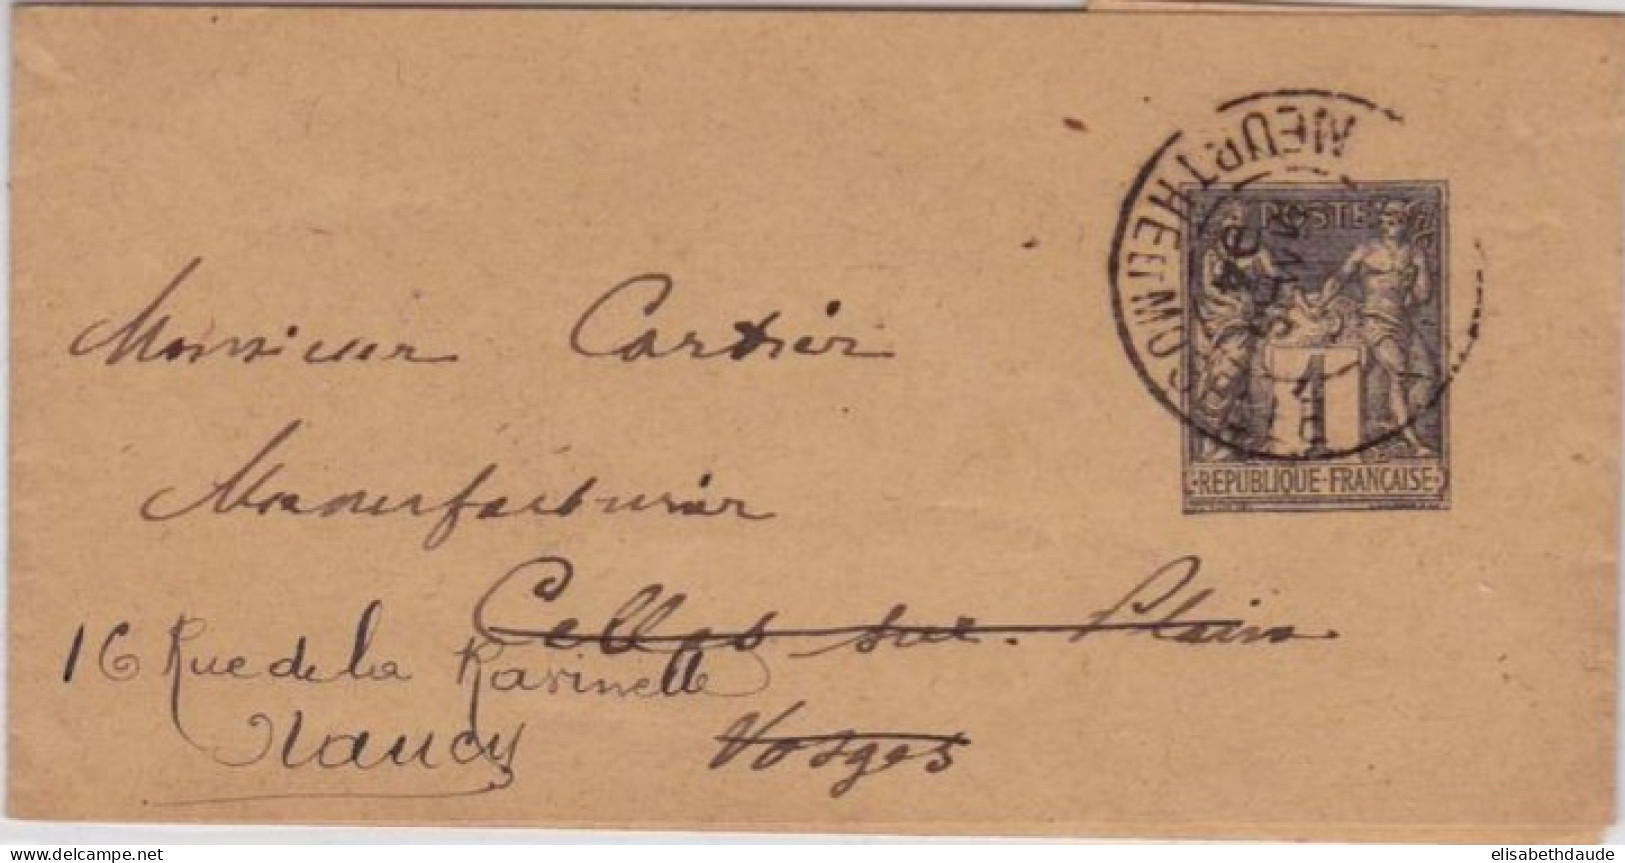 MEURTHE-ET-MOSELLE
POSTE
1
REPUBLIQUE-FRANÇAISE
Monsieur Cartier
Manufacturier
Celles sur Plaine
16 Rue de la Ravinelle
Nancy
Vosges
www.delcampe.net
elisabethdaude